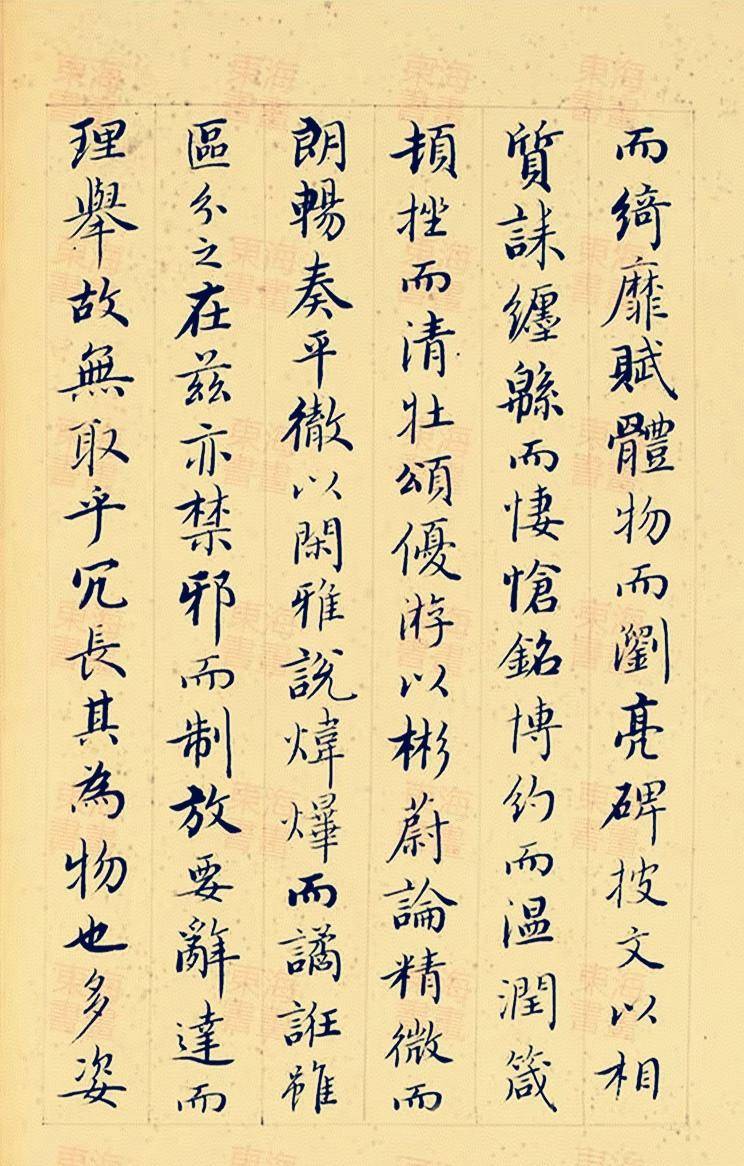 而綺靡賦體物而瀏亮碑披文以相
質誄纏緜而悽愴銘博約而温潤箴
頓挫而清壯頌優游以彬蔚論精微而
朗暢奏平徹以閑雅說煒爗而譎誑雖
區分之在茲亦禁邪而制放要辭達而
理舉故無取乎冗長其為物也多姿
東海書畫